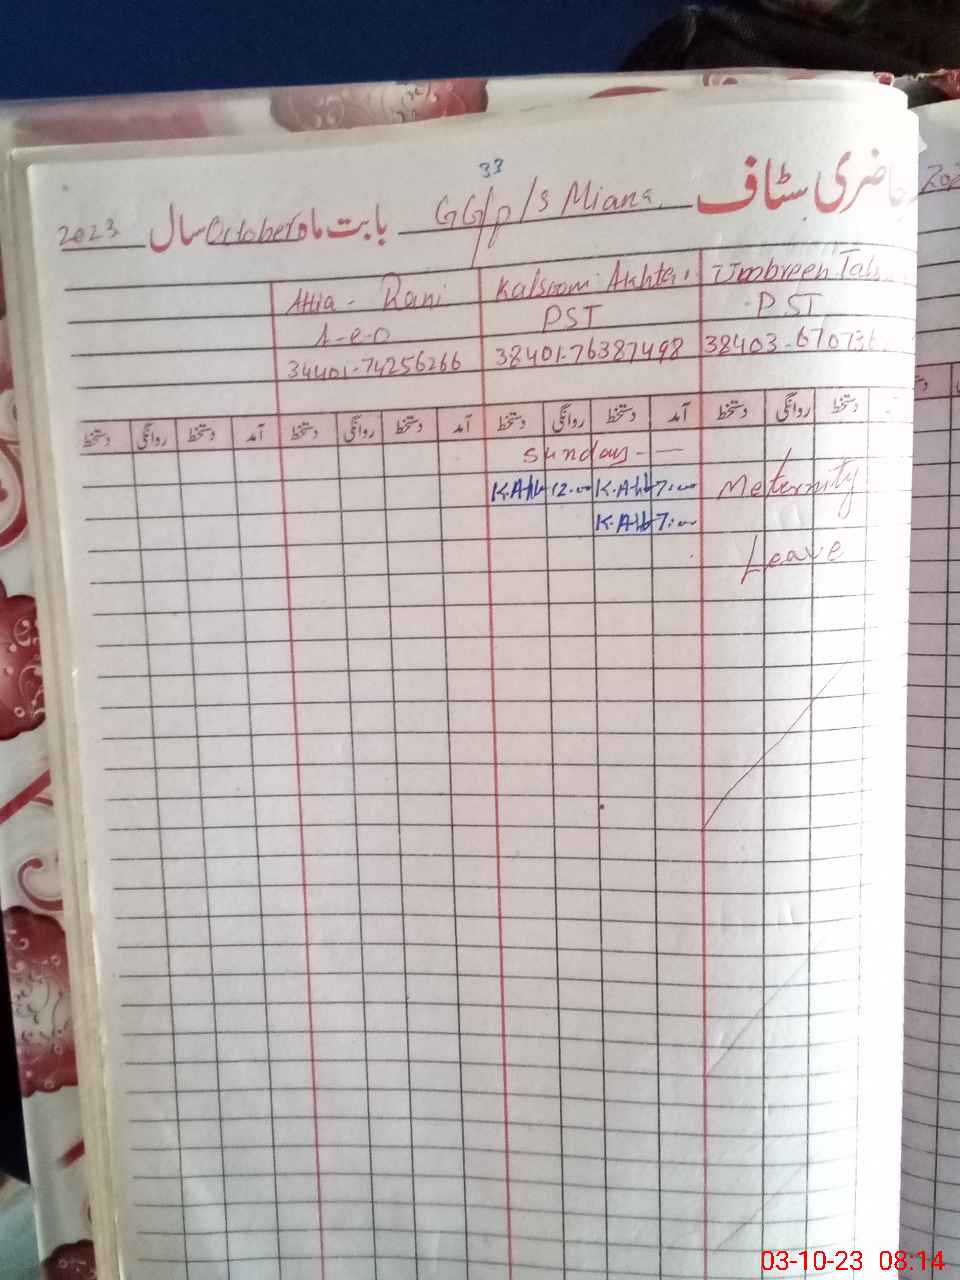 33
حاضری سٹاف GG/p/s Miana بابت ماہ October سال 2023
Attia - Rani Kalsoom Akhter Umbreen
A-e-o PST PST
34401-74256266 38401-76387498 38403-
دستخط روانگی دستخط آمد دستخط روانگی دستخط آمد دستخط روانگی دستخط آمد دستخط روانگی دستخط
Sunday - —
K.Akh 12.00 K.Akh 7:00 Meternity
K.Akh 7:00
Leave
03-10-23 08:14